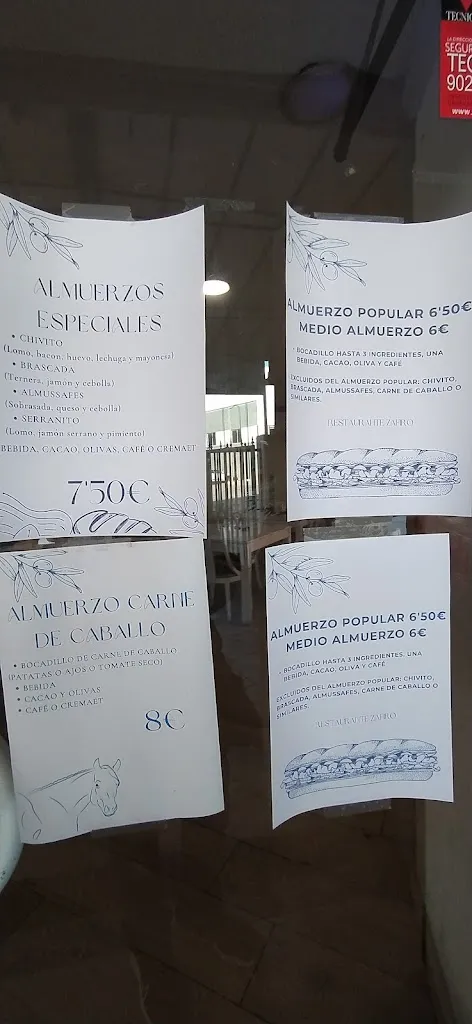 TECNIC
LA DIRECCIÓN
SEGUR
TEC
902
www.
ALMUERZOS
ESPECIALES
• CHIVITO
(Lomo, bacon, huevo, lechuga y mayonesa)
• BRASCADA
(Ternera, jamón y cebolla)
• ALMUSSAFES
(Sobrasada, queso y cebolla)
• SERRANITO
(Lomo, jamón serrano y pimiento)
BEBIDA, CACAO, OLIVAS, CAFÉ O CREMAET
7'50€
ALMUERZO POPULAR 6'50€
MEDIO ALMUERZO 6€
• BOCADILLO HASTA 3 INGREDIENTES, UNA
BEBIDA, CACAO, OLIVA Y CAFÉ
EXCLUIDOS DEL ALMUERZO POPULAR: CHIVITO,
BRASCADA, ALMUSSAFES, CARNE DE CABALLO O
SIMILARES.
RESTAURANTE ZAFIRO
ALMUERZO CARNE
DE CABALLO
• BOCADILLO DE CARNE DE CABALLO
(PATATAS O AJOS O TOMATE SECO)
• BEBIDA
• CACAO Y OLIVAS
• CAFÉ O CREMAET
8€
ALMUERZO POPULAR 6'50€
MEDIO ALMUERZO 6€
• BOCADILLO HASTA 3 INGREDIENTES, UNA
BEBIDA, CACAO, OLIVA Y CAFÉ
EXCLUIDOS DEL ALMUERZO POPULAR: CHIVITO,
BRASCADA, ALMUSSAFES, CARNE DE CABALLO O
SIMILARES.
RESTAURANTE ZAFIRO